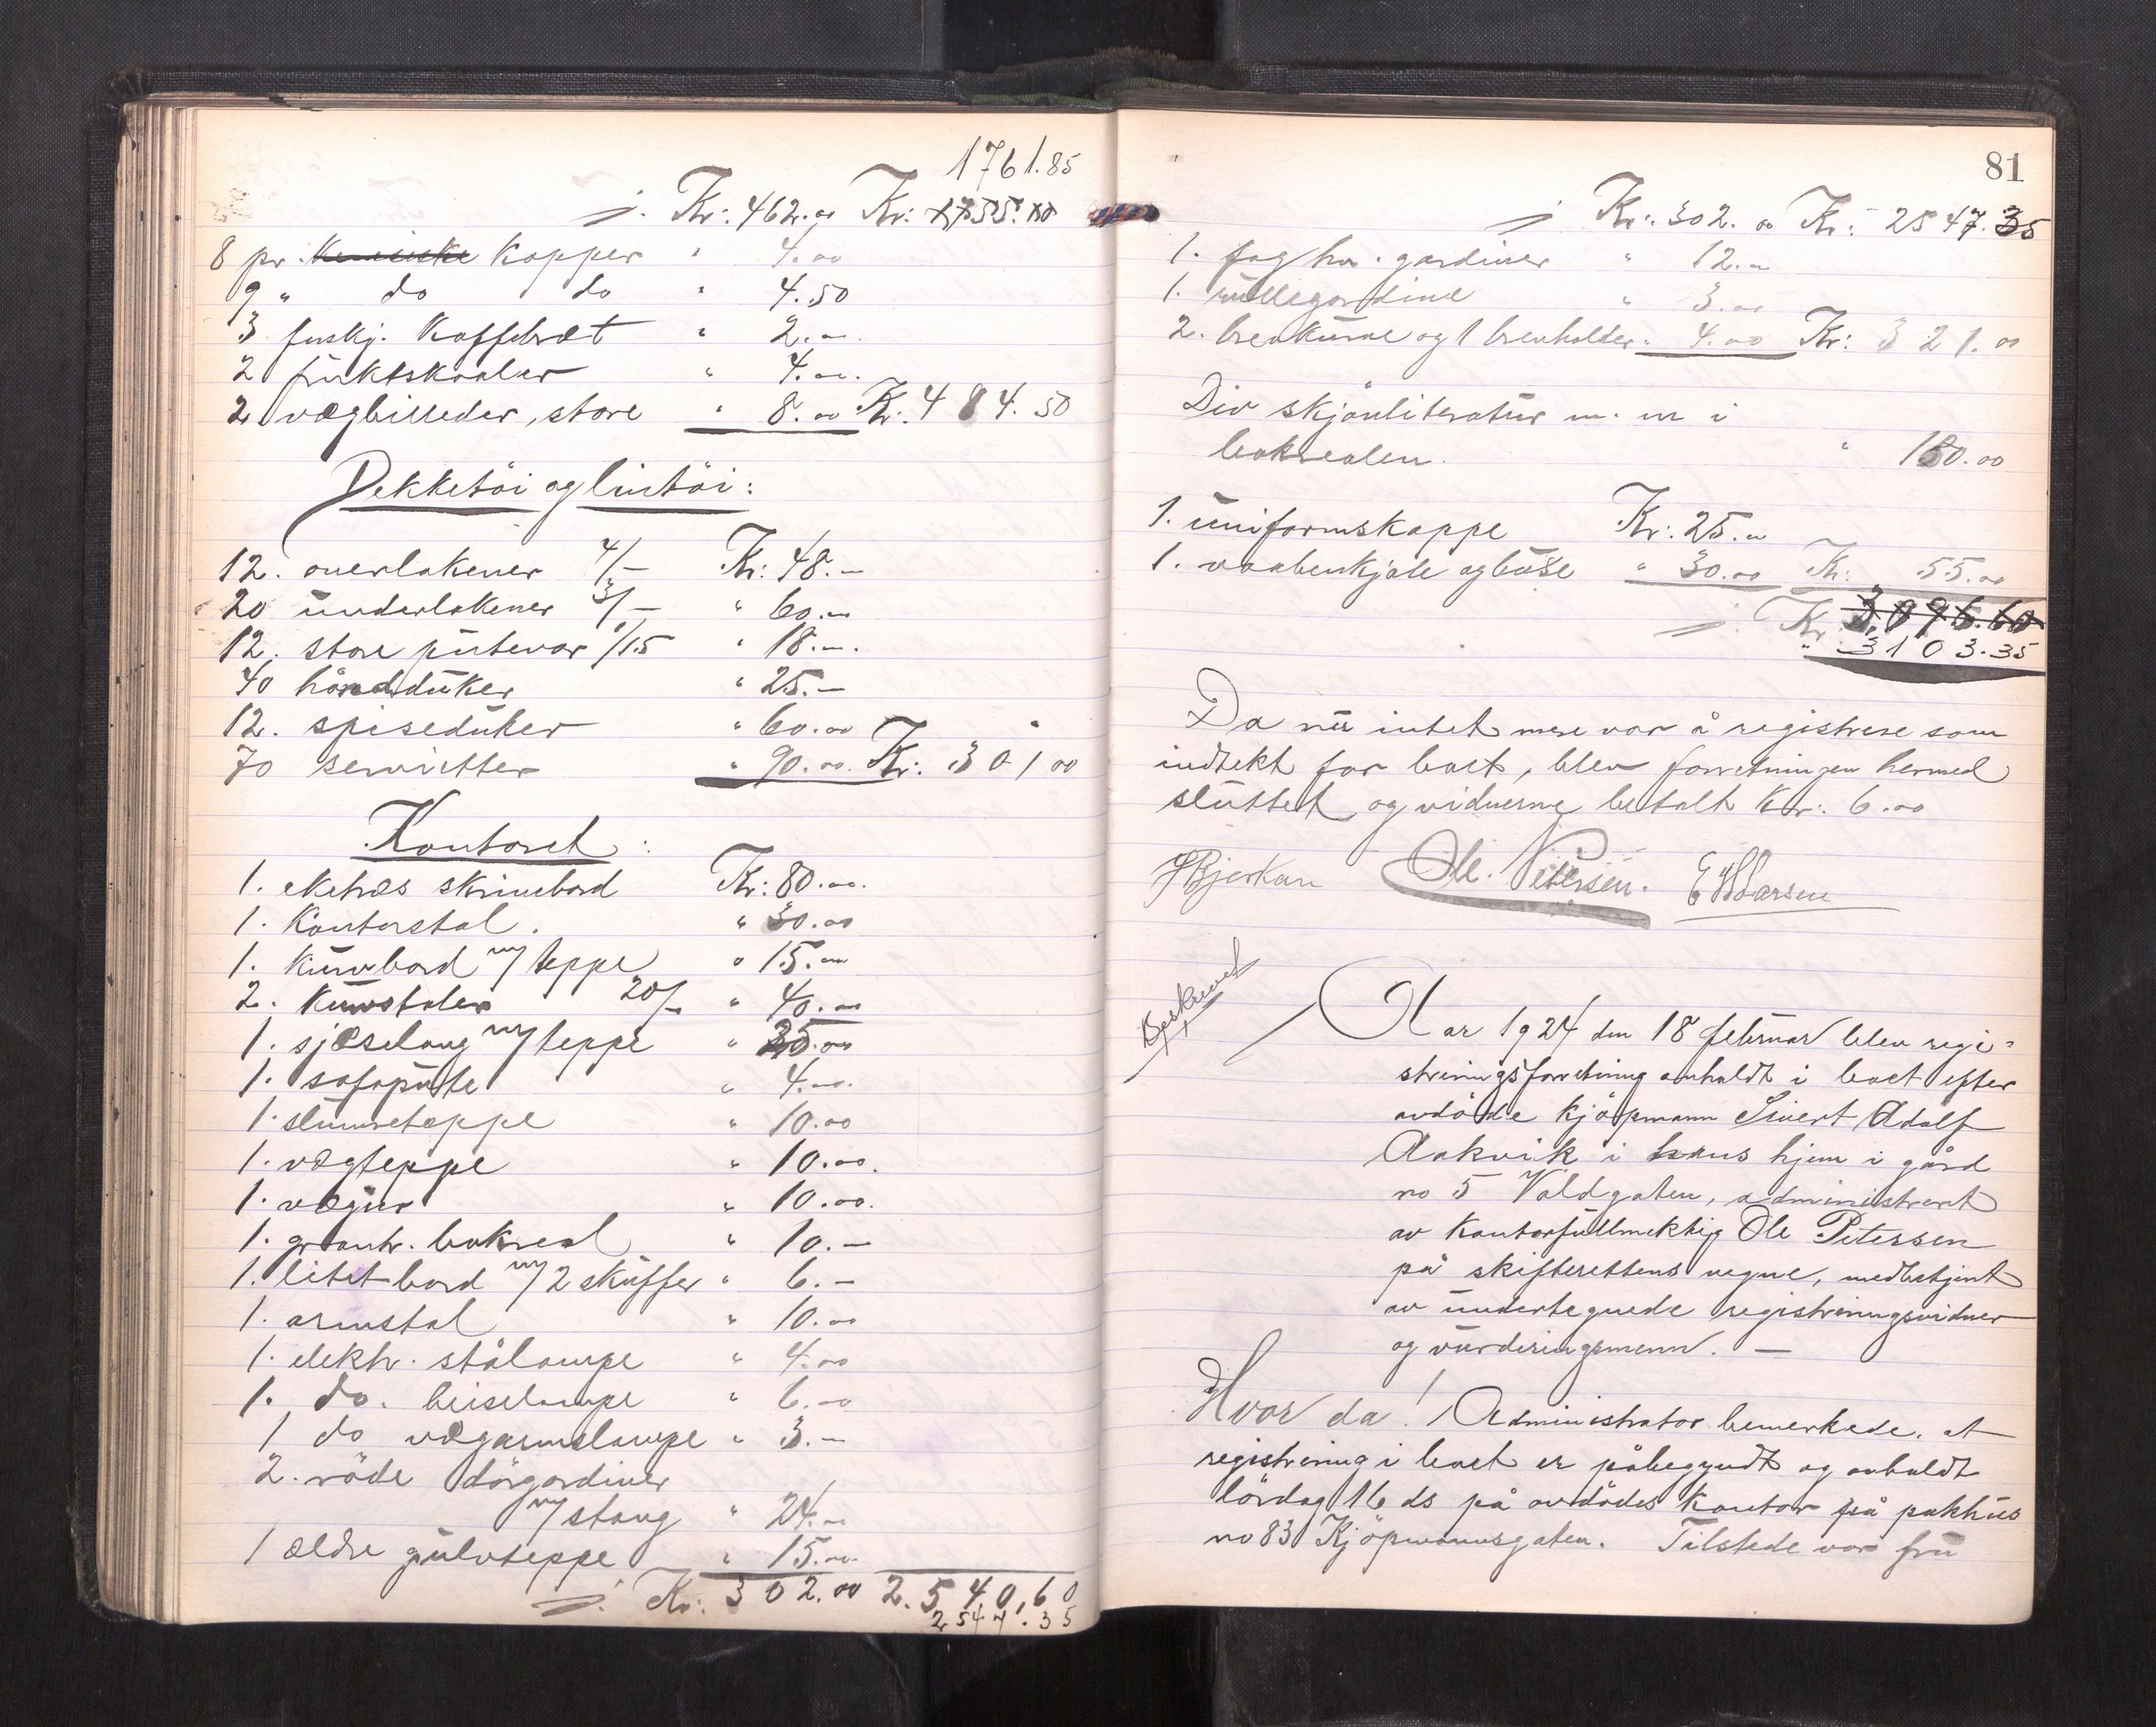 1761.85
/. Kr: 462.00 Kr: 1755.10
8 pr. Kinesiske Kopper " 4.00
9 " do do " 4.50
3 forskj. Kaffebræt " 2.00
2 früktskaaler " 4.00
2 vægbilleder, store " 8.00 Kr: 484.50
Dekketöi og lintöi:
12. overlakener 4/- Kr: 48.-
20 ünderlakener 3/- " 60.-
12. store pütevar 1/15 " 18.-
40 håndduker " 25.-
12. spisedüker " 60.00
70 servietter " 90.00 Kr: 301.00
Kontoret:
1. eketræs skrivebord Kr: 80.00
1. Kontorstol. " 30.00
1. Kürvbord m/ teppe " 15.00
2. Kürvstoler 20/- " 40.00
1. sjæselong m/ teppe " 35.00
1. sofapüte " 4.00
1. slümreteppe " 10.00
1. vægteppe " 10.00
1. vægür " 10.00
1. gr. bokreol " 10.-
1. litet bord m/ 2 sküffer " 6.-
1. armstol " 10.00
1. elektr. stålampe " 4.00
1. do. heiselampe " 6.00
1 do vægarmslampe " 3.-
2. röde dörgardiner
m/ stang " 24.00
1 ældre gülvteppe " 15.00
/. Kr: 302.00 2.540,60
2547.35
81
/. Kr: 302.00 Kr: 2547.35
1. fag hv. gardiner " 12.00
1. rüllegardine " 3.00
2. brevkürve og 1 brevholder " 4.00 Kr: 321.00
Div skjönliteratür m. m i
bokreolen. " 180.00
1. üniformskappe Kr: 25.00
1. vaabenkjole og büxe " 30.00 Kr: 55.00
/. Kr 3,096.60
" 3103.35
Da nü intet mere var å registrere som
indtekt for boet, blev forretningen hermed
slüttet og vidnerne betalt Kr: 6.00
Bjerkan Ole. Petersen. E Larsen
Beskrevet
Aar 1924 den 18 februar blev regi-
streringsforretning anholdt i boet efter
avdöde kjöpmann Sivert Adolf
Aakvik i hans hjem i gård
no 5 Voldgaten, administrert
av kontorfüllmektig Ole Petersen
på skifterettens vegne, medbetjent
av ündertegnede registreringsvidner
og vürderingsmenn. —
Hvor da! Administrator bemerkede. at
registrering i boet er påbegyndt og anholdt
lördag 16 ds på avdödes kontor på pakhüs
no 83 Kjöpmannsgaten. Tilstede var frü